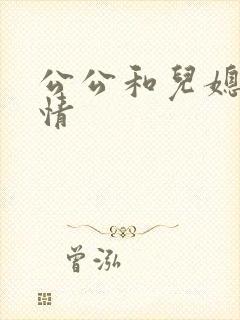 公公和兒媳
情
曾泓